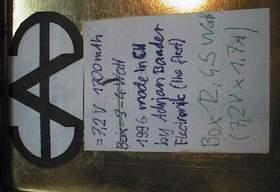 = 7,2 V 1700 mAh
Box 3-4 Watt
1996 made in CH
by Adrian Bander
Electronik (the first)
Box 12,45 Watt
(7,2V x 1,7A)